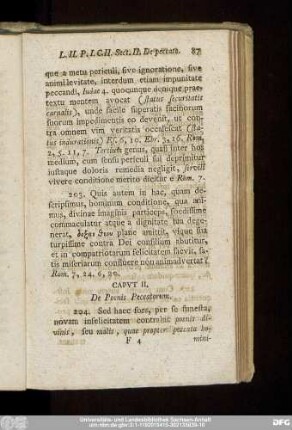 L. II. P. I. C. II. Sect. II. De peccato. 87
que a metu periculi, sive ignoratione, sive
animi levitate, interdum etiam impunitate
peccandi, Iudae 4. quocunque denique prae-
textu mentem avocat (status securitatis
carnalis), unde facile superatis facinorum
suorum impedimentis eo devenit, ut con-
tra omnem vim veritatis occalescat (sta-
tus indurationis) Ef. 6, 10. Ebr. 3, 16. Rom.
2, 5. 11, 7. Tertium genus, quasi inter hos
medium, cum sensu periculi sui deprimitur
iustaque doloris remedia negligit, servili
vivere conditione merito dicitur e Rom. 7.
203. Quis autem in hac, quam de-
scripsimus, hominum conditione, qua ani-
mus, divinae imaginis particeps, foedissime
commaculatur atque a dignitate sua dege-
nerat, plane amittit, vique sua
turpissime contra Dei consilium abutitur,
et in compatriotarum felicitatem saevit, sa-
tis miseriarum consistere non animadvertat?
Rom. 7, 24. 6, 20.
CAPVT II.
De Poenis Peccatorum.
204. Sed haec sors, per se funesta,
novam infelicitatem contrahit poenis di-
vinis, seu malis, quae propter peccata ho-
F 4 mini-
Universitäts- und Landesbibliothek Sachsen-Anhalt